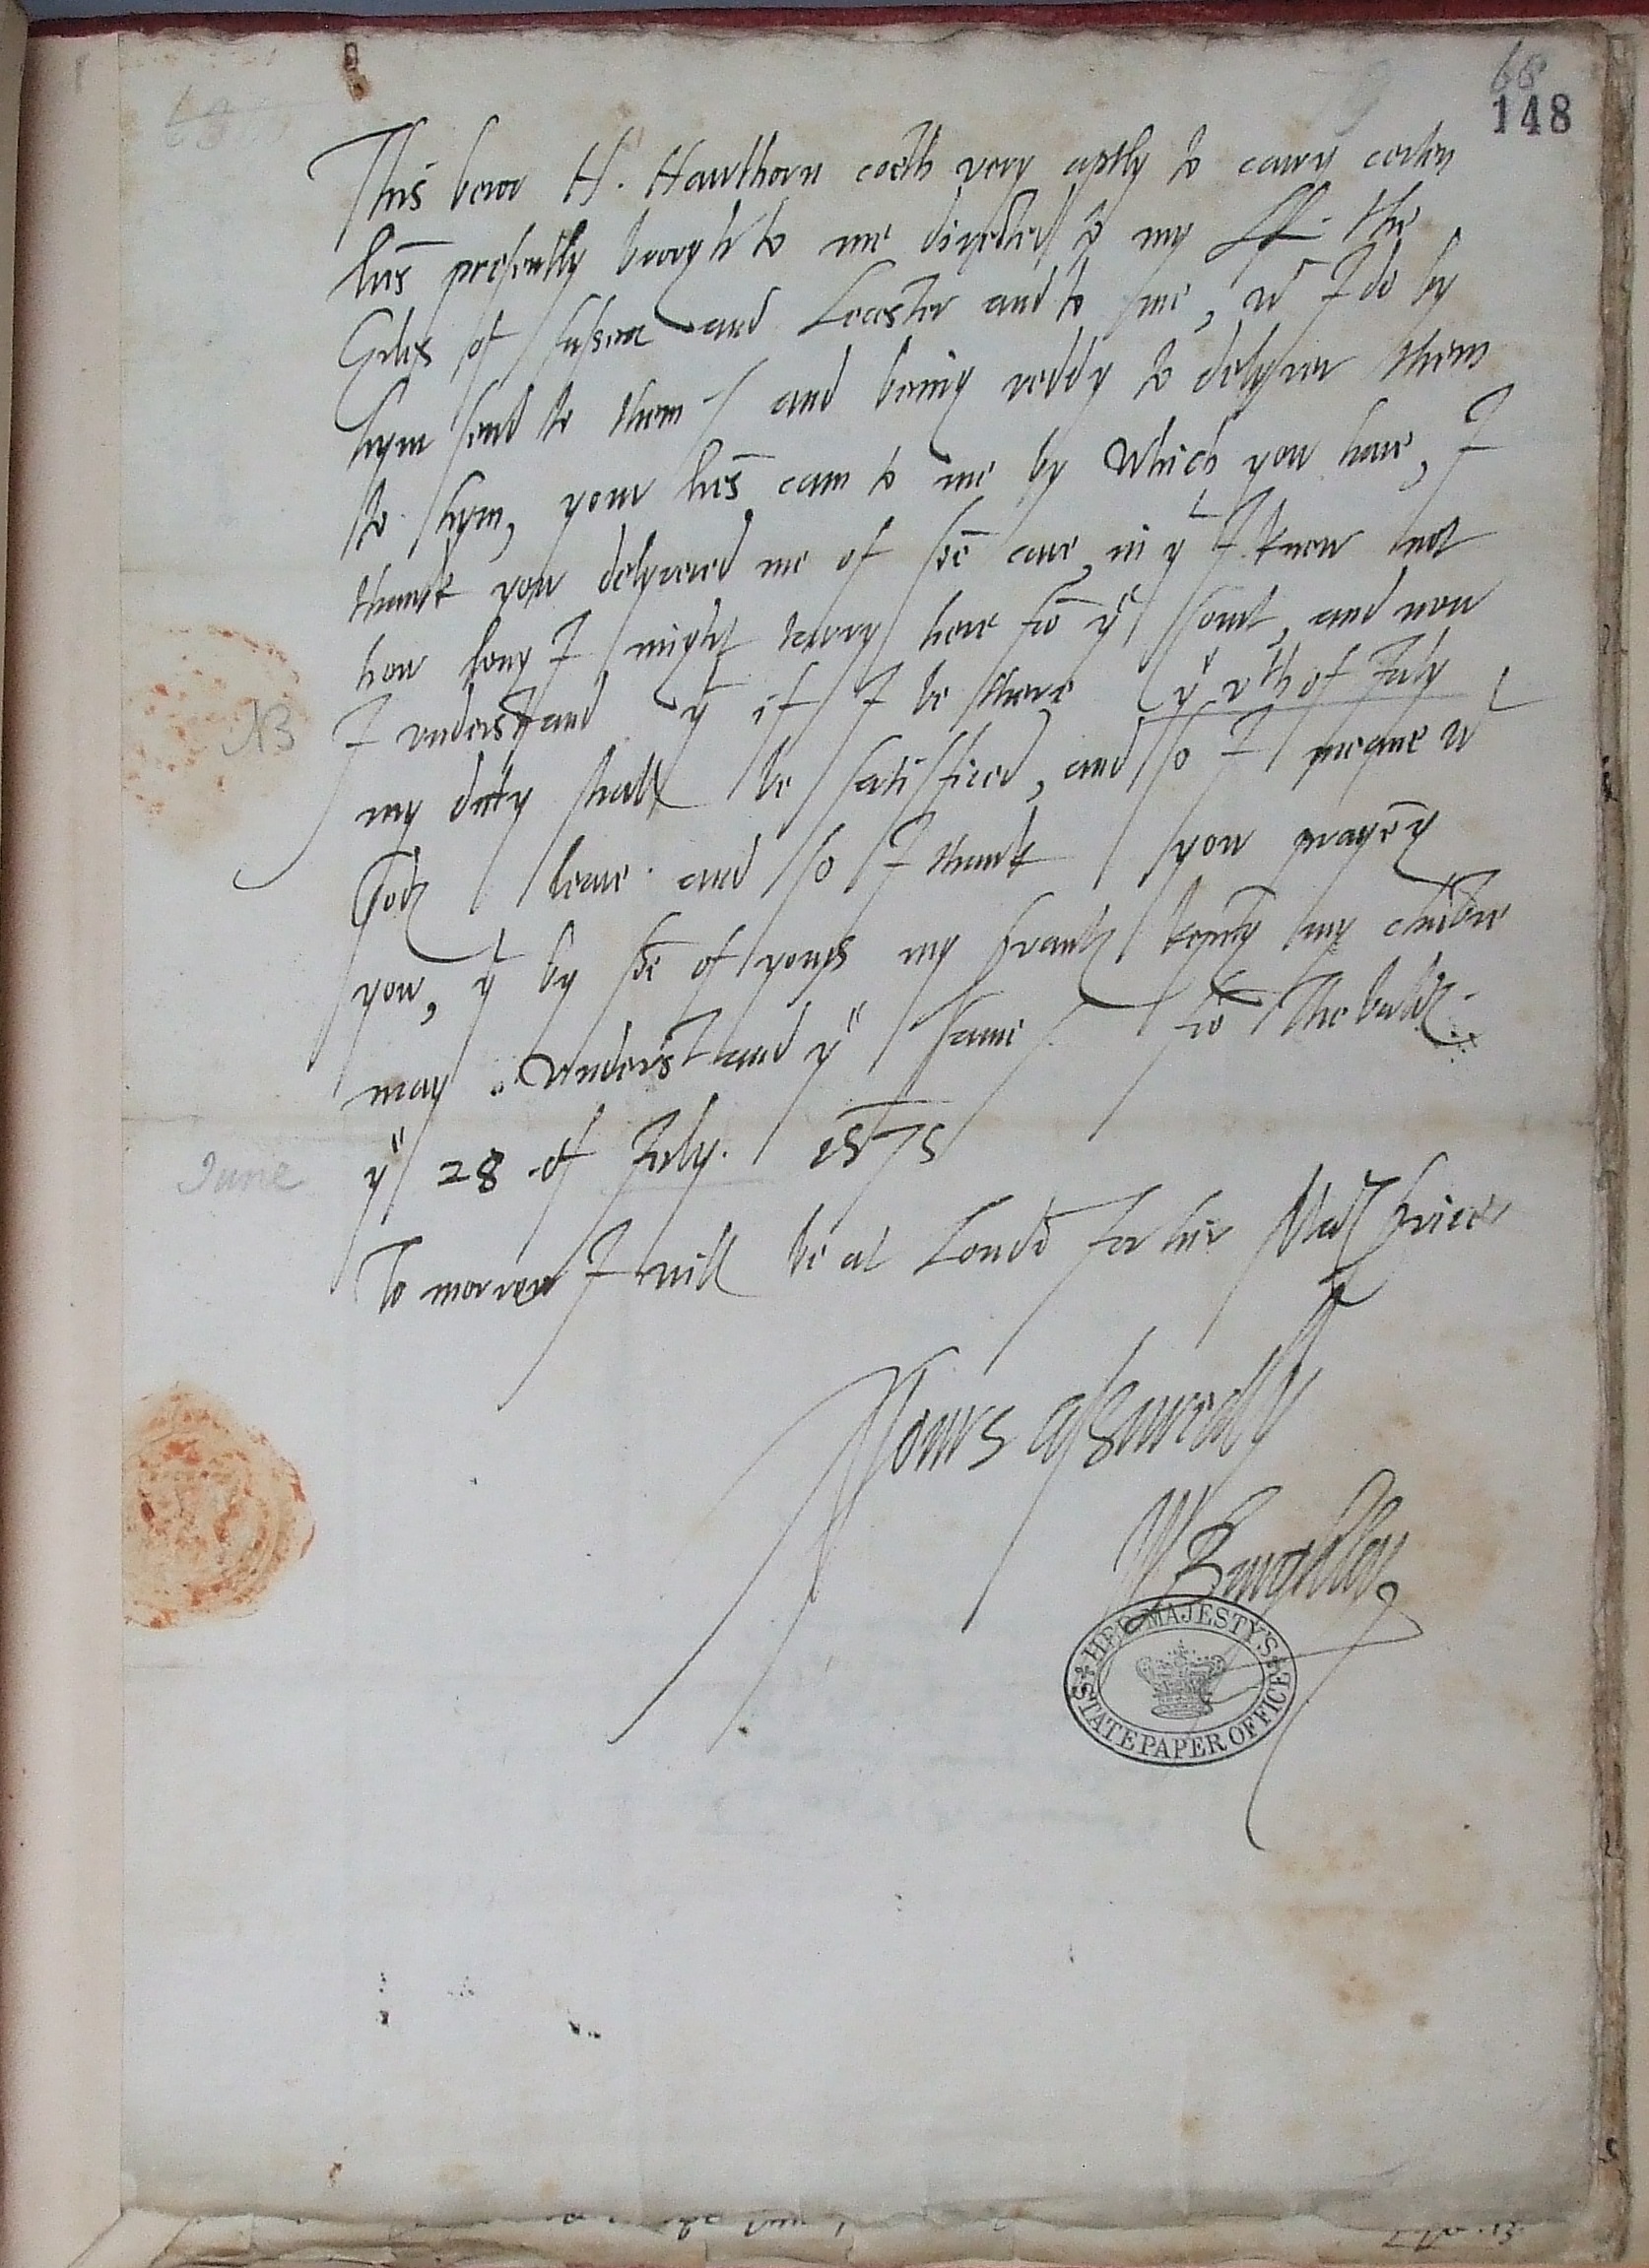 68
148
This berar H. Hawthorn coeth very aptly to cary certen
lrēs presently brought to me directed to my LL. the
Erles of Sussex and Lecester and to me, wch I do by
hym send to them / and being reddy to delyver them
to hym, your lrēs cam to me by which you have, I
thank you delyvered me of sōe care, in yt I knew not
how long I might tarry here frō ye Court, and now
NB
I understand yt if I be there ye vth of July
my duty shall be satisfied, and so I meane wt
Gods leave. and so I thank you prayēg
you, yt by sōe of yours my svants kepīg my chābre
may understand ye same. frō Thebalds.
June
ye 28 of July. 1575
To morrow I will be at Londō for hir Matys service
Yours assuredly
W Burghley
HER MAJESTY'S
STATE PAPER OFFICE